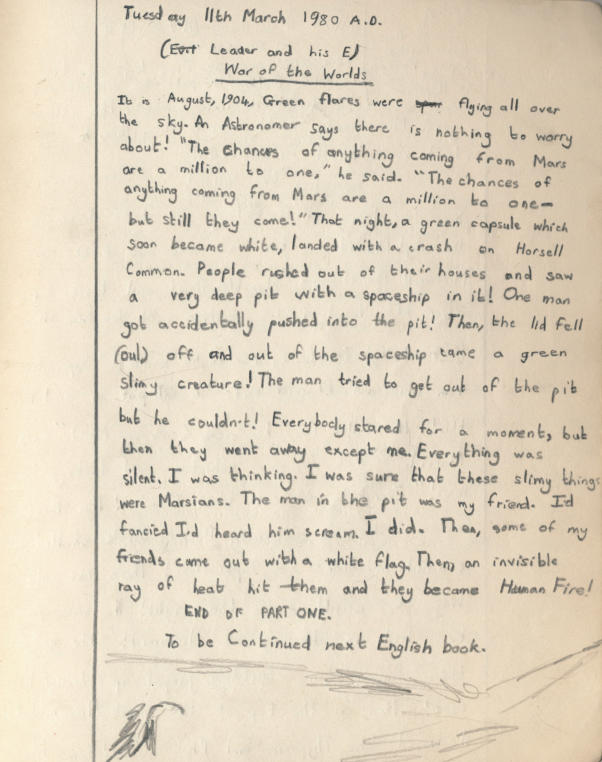 Tuesday 11th March 1980 A.D.
(Evil Leader and his E)
War of the Worlds
It is August, 1904, Green flares were flying all over
the sky. An Astronomer says there is nothing to worry
about! "The chances of anything coming from Mars
are a million to one," he said. "The chances of
anything coming from Mars are a million to one-
but still they come!" That night, a green capsule which
soon became white, landed with a crash on Horsell
Common. People rushed out of their houses and saw
a very deep pit with a spaceship in it! One man
got accidentally pushed into the pit! Then, the lid fell
(out) off and out of the spaceship came a green
slimy creature! The man tried to get out of the pit
but he couldn't! Everybody stared for a moment, but
then they went away except me. Everything was
silent. I was thinking. I was sure that these slimy things
were Marsians. The man in the pit was my friend. I'd
fancied I'd heard him scream. I did. Then, some of my
friends came out with a white flag. Then, an invisible
ray of heat hit them and they became Human Fire!
END OF PART ONE.
To be Continued next English book.